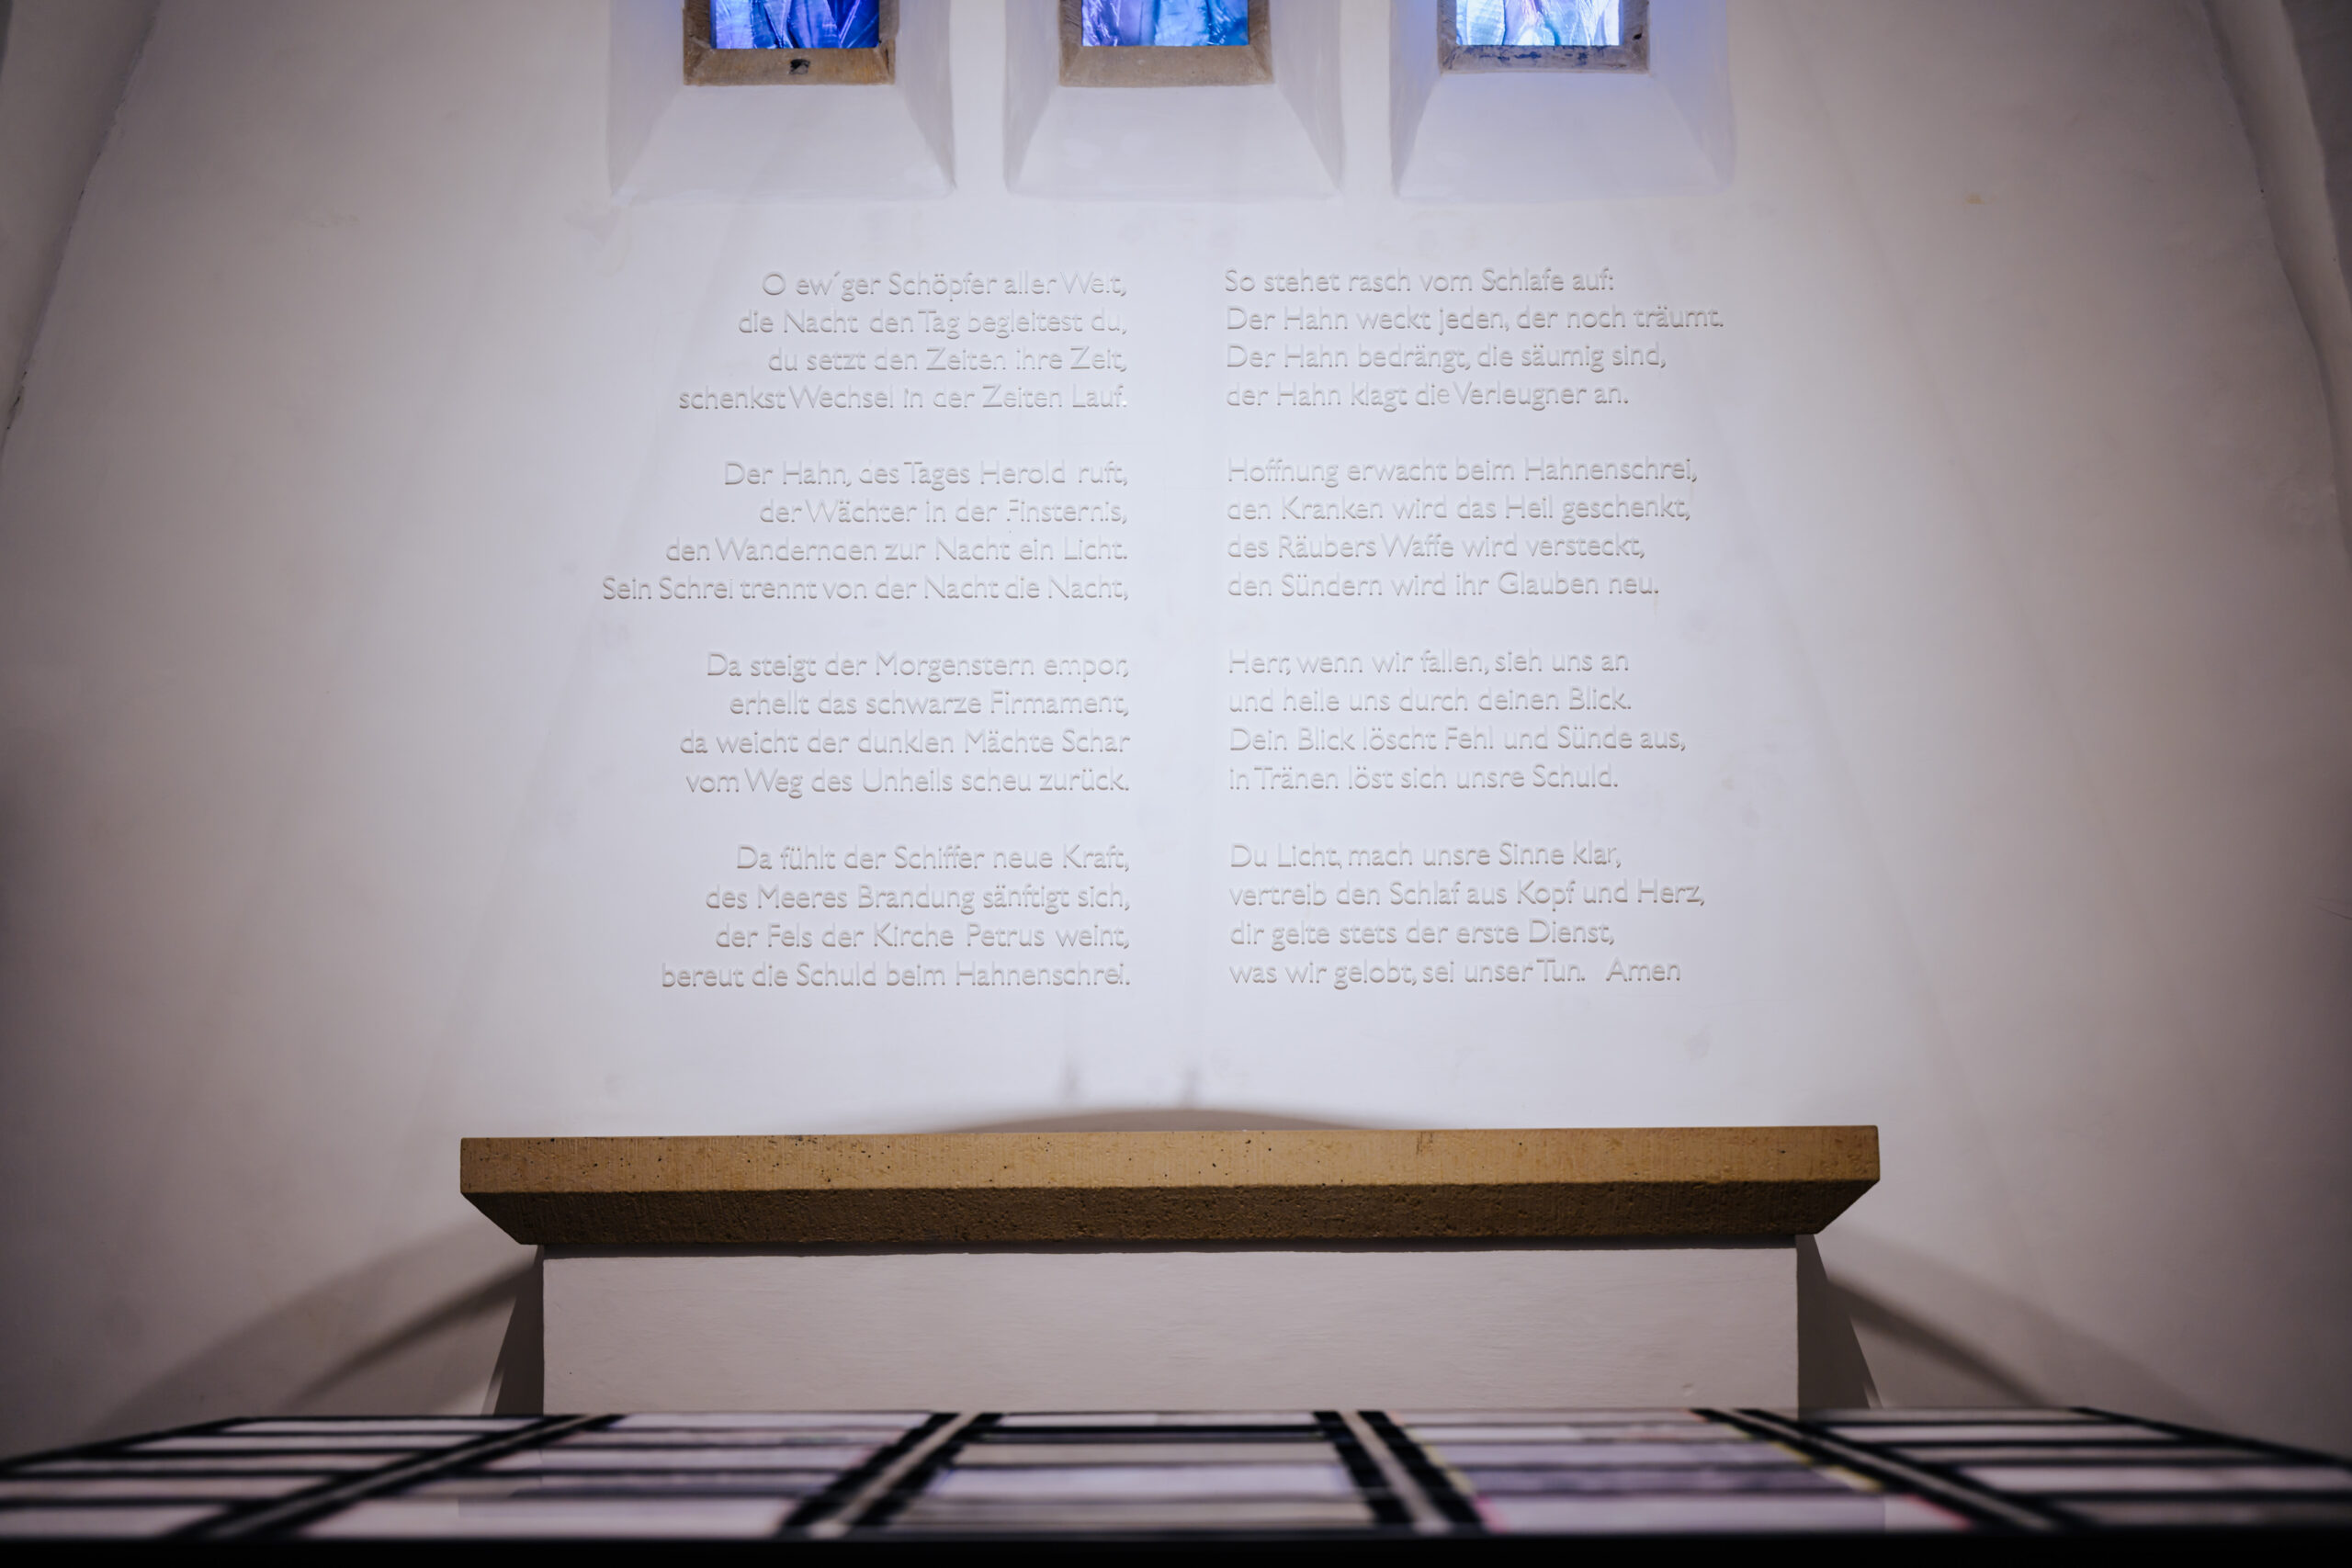 O ew´ger Schöpfer aller Welt,
die Nacht den Tag begleitest du,
du setzt den Zeiten ihre Zeit,
schenkst Wechsel in der Zeiten Lauf.
Der Hahn, des Tages Herold ruft,
der Wächter in der Finsternis,
den Wandernden zur Nacht ein Licht.
Sein Schrei trennt von der Nacht die Nacht,
Da steigt der Morgenstern empor,
erhellt das schwarze Firmament,
da weicht der dunklen Mächte Schar
vom Weg des Unheils scheu zurück.
Da fühlt der Schiffer neue Kraft,
des Meeres Brandung sänftigt sich,
der Fels der Kirche Petrus weint,
bereut die Schuld beim Hahnenschrei.
So stehet rasch vom Schlafe auf:
Der Hahn weckt jeden, der noch träumt.
Der Hahn bedrängt, die säumig sind,
der Hahn klagt die Verleugner an.
Hoffnung erwacht beim Hahnenschrei,
den Kranken wird das Heil geschenkt,
des Räubers Waffe wird versteckt,
den Sündern wird ihr Glauben neu.
Herr, wenn wir fallen, sieh uns an
und heile uns durch deinen Blick.
Dein Blick löscht Fehl und Sünde aus,
in Tränen löst sich unsre Schuld.
Du Licht, mach unsre Sinne klar,
vertreib den Schlaf aus Kopf und Herz,
dir gelte stets der erste Dienst,
was wir gelobt, sei unser Tun. Amen